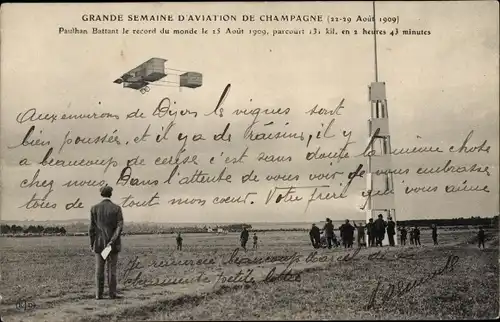 GRANDE SEMAINE D'AVIATION DE CHAMPAGNE (22-29 Août 1909)
Paulhan Battant le record du monde le 25 Août 1909, parcourt 131 kil. en 2 heures 43 minutes
Aux environs de Dijon les vignes sont
bien poussées, et il y a de raisins, il y
a beaucoup de cerise c'est sans doute la meme chose
chez nous. Dans l'attente de vous voir je vous embrasse
tous de tout mon coeur. Votre qui vous aime
Je remercie beaucoup Marcel de
petite lettre